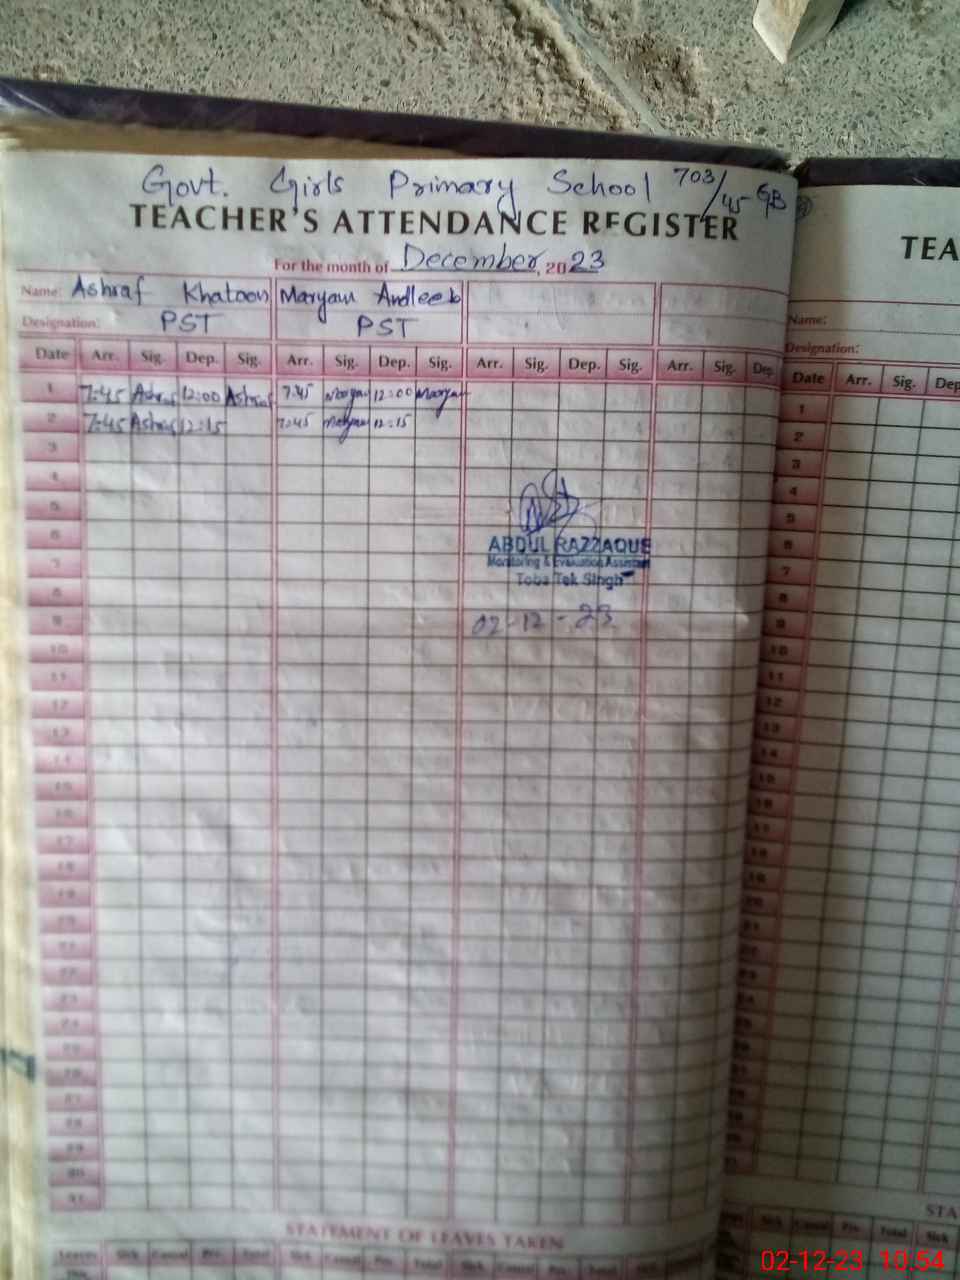 Govt. Girls Primary School 703/45 GB
TEACHER'S ATTENDANCE REGISTER
For the month of December, 2023
Name: Ashraf Khatoon Maryam Andleeb
Designation: PST PST
Date Arr. Sig. Dep. Sig. Arr. Sig. Dep. Sig. Arr. Sig. Dep. Sig. Arr. Sig. Dep.
1 7:45 Ashraf 12:00 Ashraf 7:45 Maryam 12:00 Maryam
2 7:45 Ashraf 12:15 7:45 Maryam 12:15
3
4
5
6
7
8
9
10
11
12
13
14
15
16
17
18
19
20
21
22
23
24
25
26
27
28
29
30
31
ABDUL RAZZAQUE
Monitoring & Evaluation Assistant
Toba Tek Singh
02-12-23
STATEMENT OF LEAVES TAKEN
Leaves Sick Casual Prv. Total Sick Casual Prv. Total Sick Casual Prv. Total Sick Casual Prv.
TEA
Name:
Designation:
Date Arr. Sig. Dep
1
2
3
4
5
6
7
8
9
10
11
12
13
14
15
16
17
18
STA
Sick Casual Prv. Total Sick
02-12-23 10:54